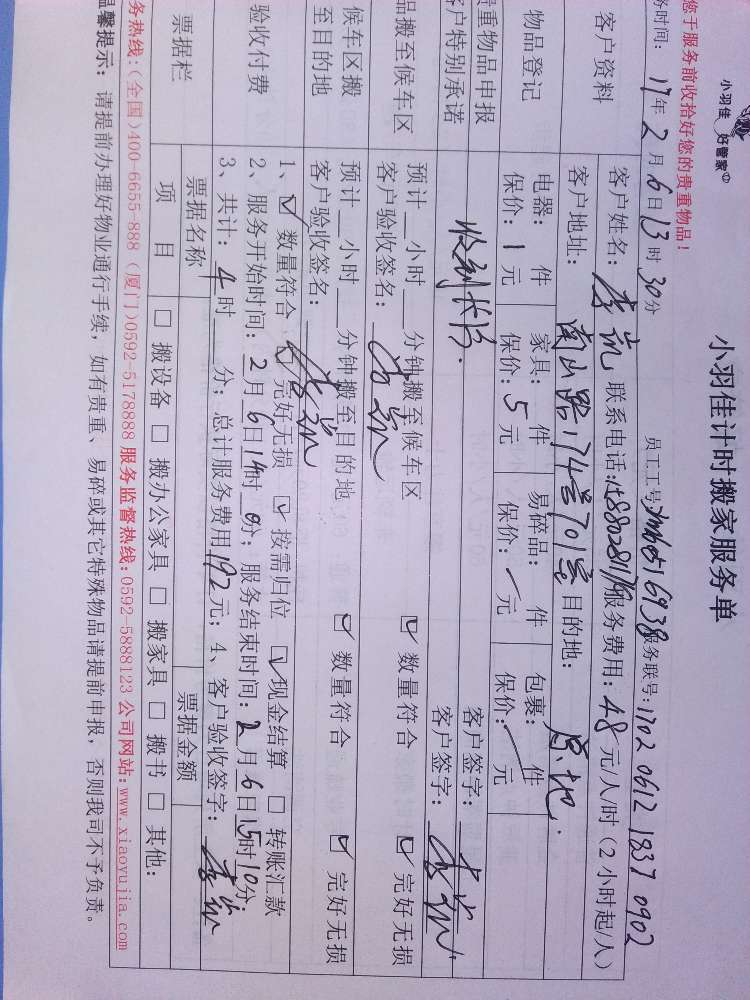 小羽佳 好管家
小羽佳计时搬家服务单
您于服务前收拾好您的贵重物品！
务时间：17年2月6日13时30分 员工工号： 服务联号：1702 0612 1837 0902
客户资料
客户姓名：李 联系电话： 服务费用：48元/人/时（2小时起/人）
客户地址：南山路174号701室 目的地：原地.
物品登记
电器： 件 家具： 件 易碎品： 件 包裹： 件
保价：1元 保价：5元 保价： 元 保价： 元
贵重物品申报 客户签字：
客户特别承诺 客户签字：
品搬至候车区
预计 小时 分钟搬至候车区 ☑ 数量符合 ☑ 完好无损
客户验收签名：
候车区搬至目的地
预计 小时 分钟搬至目的地 ☑ 数量符合 ☑ 完好无损
客户验收签名：
验收付费
1、☑ 数量符合 ☑ 完好无损 ☑ 按需归位 ☑ 现金结算 □ 转账汇款
2、服务开始时间：2月6日14时0分；服务结束时间：2月6日15时10分；
3、共计：4时 分；总计服务费用192元；4、客户验收签字：
票据栏 票据名称 票据金额
项 目 □ 搬设备 □ 搬办公家具 □ 搬家具 □ 搬书 □ 其他：
务热线：（全国）400-6655-888（厦门）0592-5178888 服务监督热线：0592-5888123 公司网站：www.xiaoyujia.com
温馨提示：请提前办理好物业通行手续，如有贵重、易碎或其它特殊物品请提前申报，否则我司不予负责。